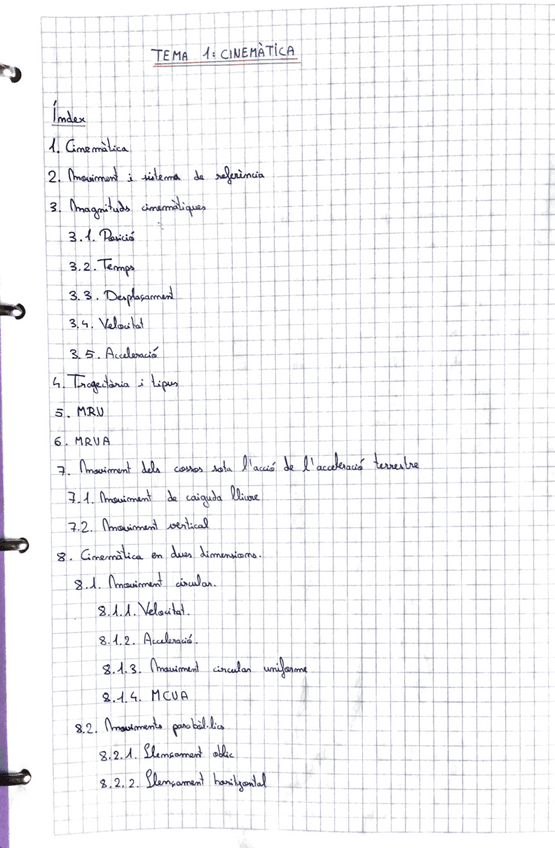 TEMA 1: CINEMÀTICA
Índex
1. Cinemàtica
2. Moviment i sistema de referència
3. Magnituds cinemàtiques
3.1. Posició
3.2. Temps
3.3. Desplaçament
3.4. Velocitat
3.5. Acceleració
4. Trajectòria i tipus
5. MRU
6. MRUA
7. Moviment dels cossos sota l'acció de l'acceleració terrestre
7.1. Moviment de caiguda lliure
7.2. Moviment vertical
8. Cinemàtica en dues dimensions.
8.1. Moviment circular.
8.1.1. Velocitat.
8.1.2. Acceleració.
8.1.3. Moviment circular uniforme
8.1.4. MCUA
8.2. Moviments parabòl·lics
8.2.1. Llençament oblic
8.2.2. Llençament horitzontal